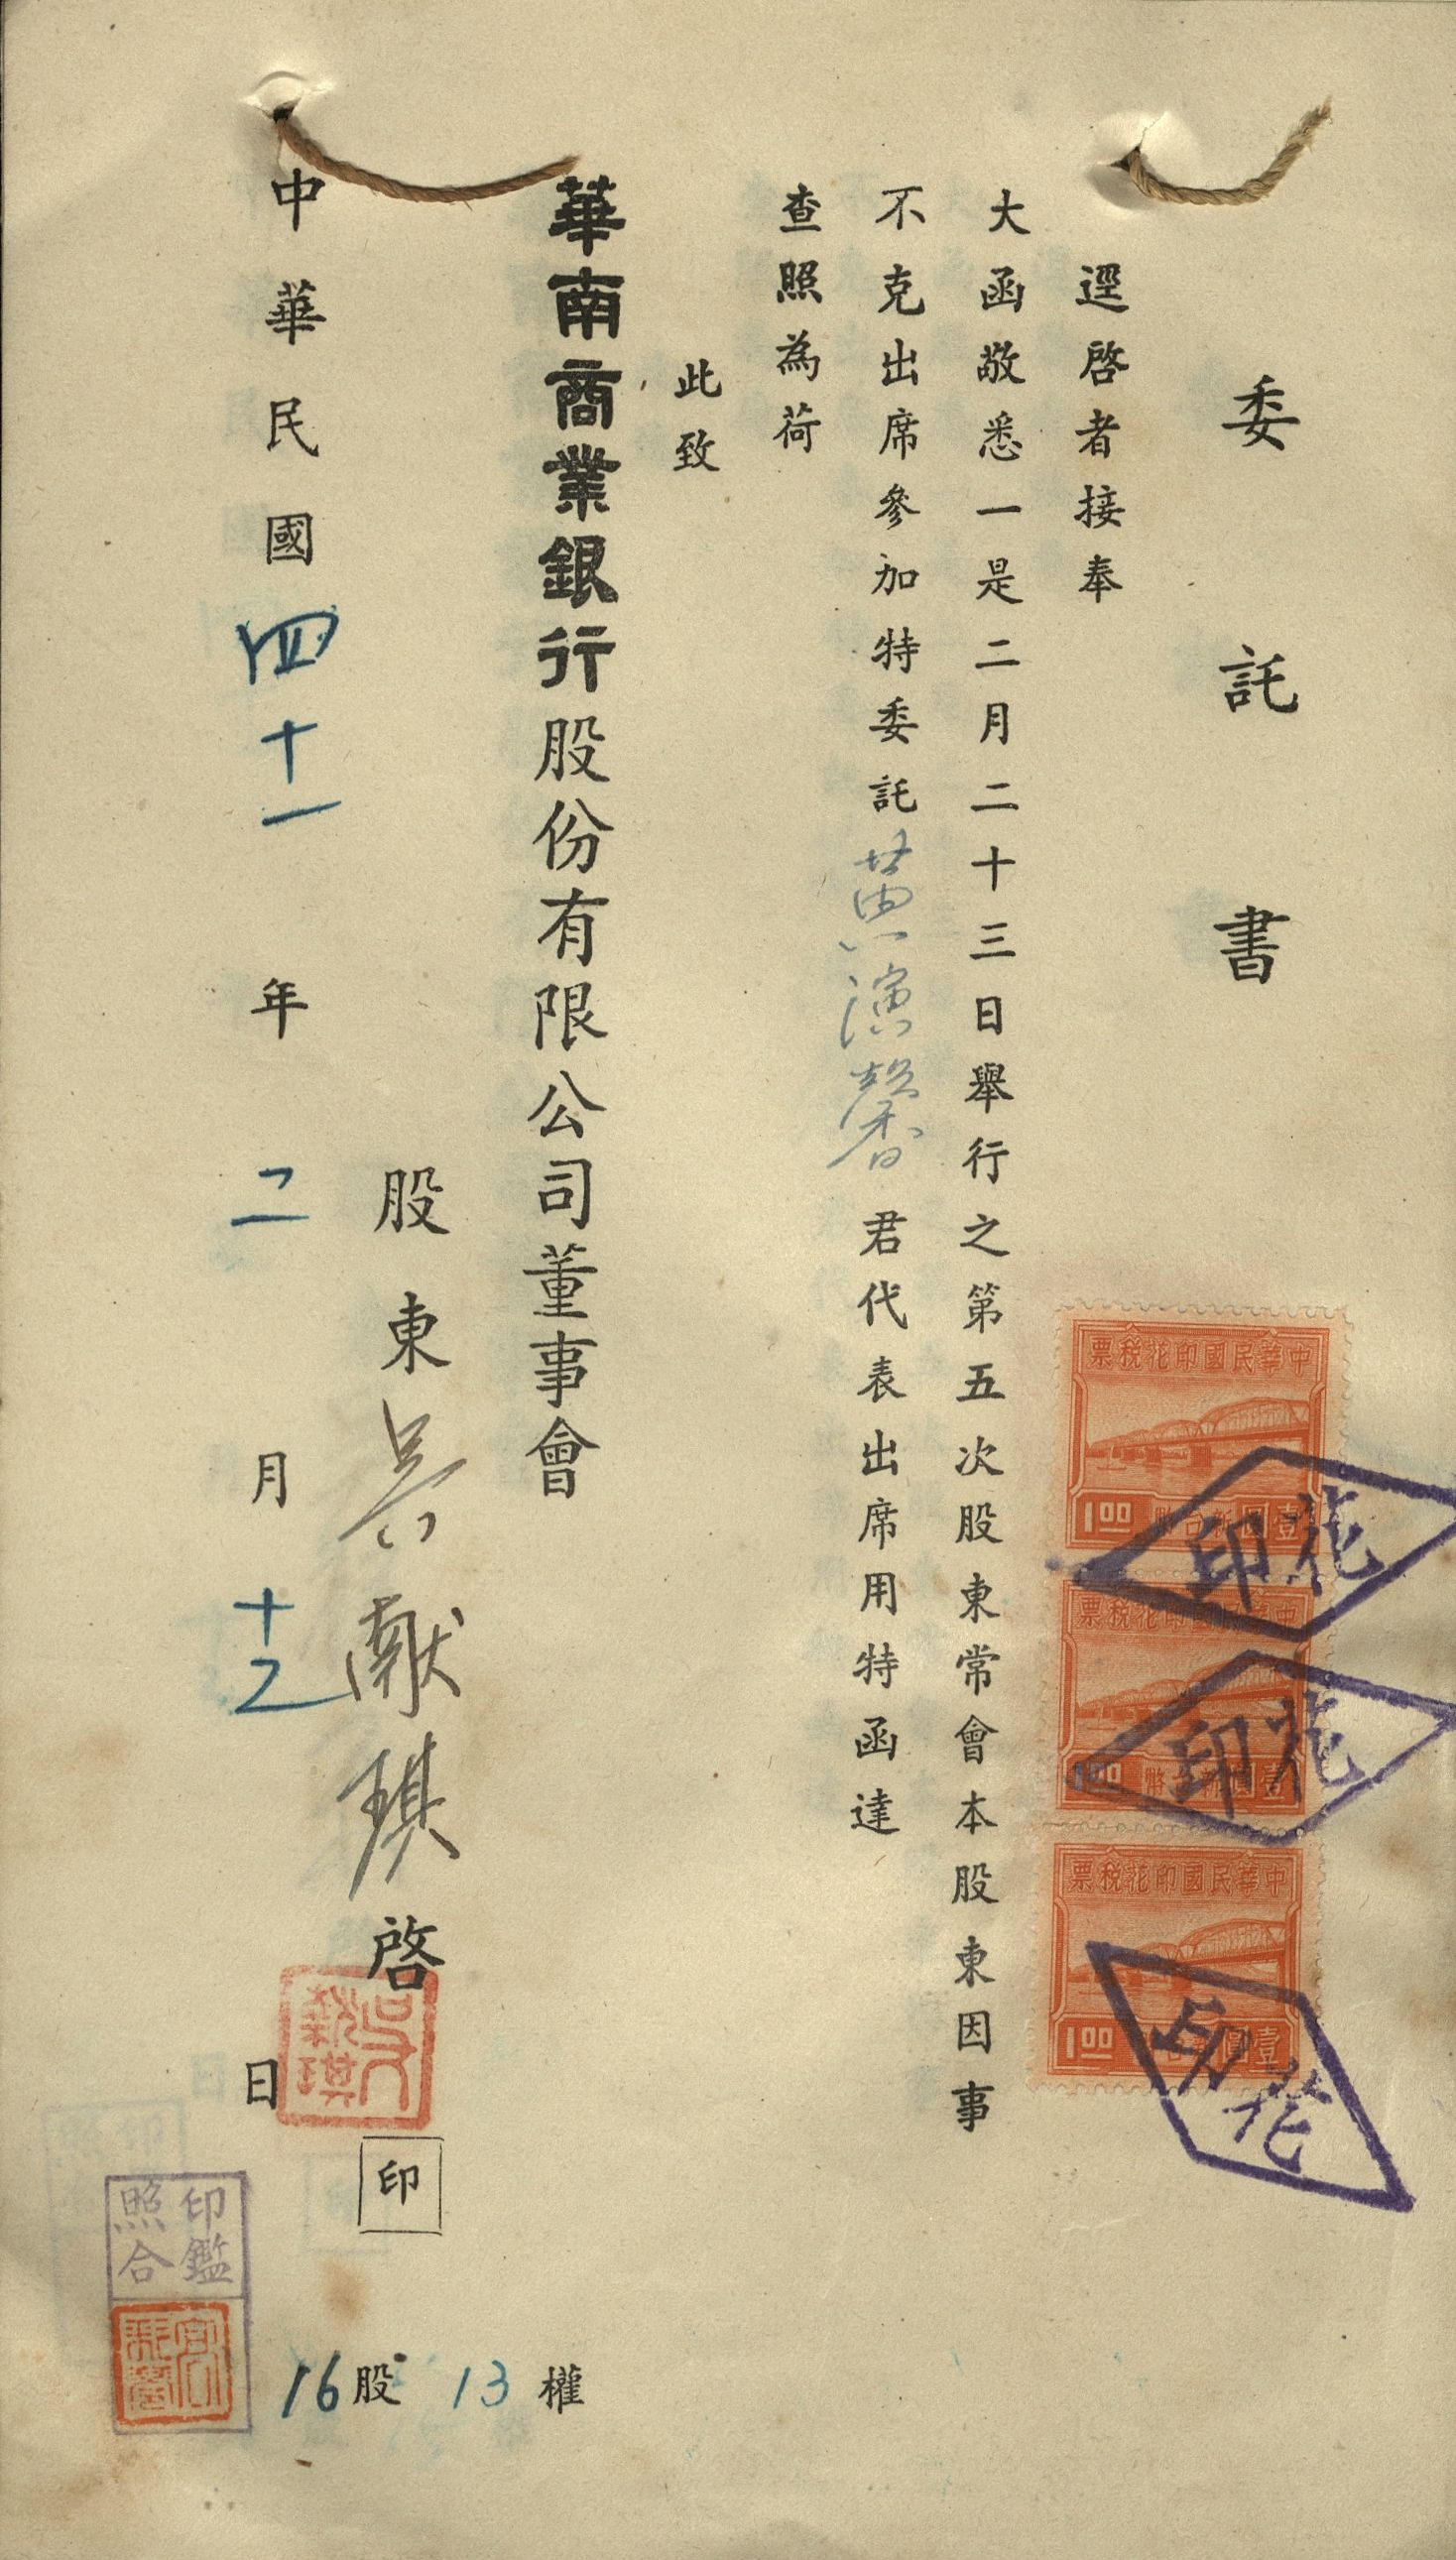 委託書
逕啓者接奉
大函敬悉一是二月二十三日舉行之第五次股東常會本股東因事
不克出席參加特委託黃演馨君代表出席用特函達
查照為荷
此致
華南商業銀行股份有限公司董事會
股東吳献琪啓
印
中華民國四十一年二月十乙日
16股 13權
中華民國印花稅票
1.00 壹圓新台幣
中華民國印花稅票
1.00 壹圓新台幣
中華民國印花稅票
1.00 壹圓
印花
印花
印花
吳献琪
印鑑
照合